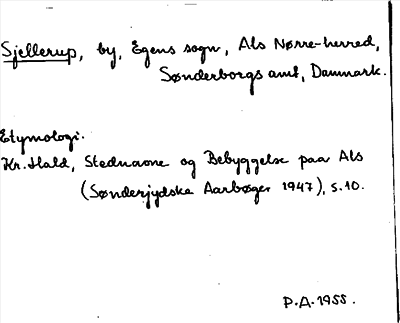 Sjellerup, by, Egens sogn, Als Nørre-herred,
Sønderborgs amt, Danmark.
Etymologi.
Kr. Hald, Stednavne og Bebyggelse paa Als
(Sønderjydske Aarbøger 1947), s.10.
P.A. 1955.